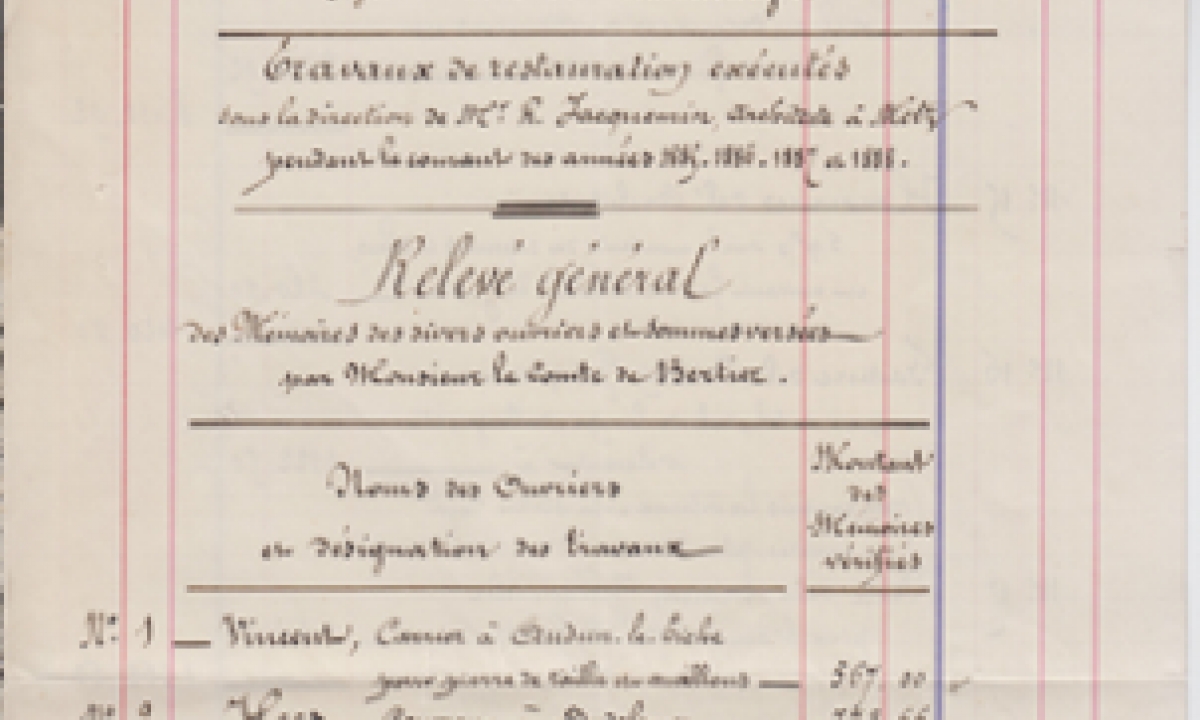 Travaux de restauration exécutés
sous la direction de Mr. R. Jacquemin, architecte à Metz
pendant le courant des années 1885. 1886. 1887 et 1888.
Relevé général
des Mémoires des divers ouvriers et sommes versées
par Monsieur le Comte de Bertier.
Noms des Ouvriers
et désignation des travaux
Montant
des
Mémoires
vérifiés
No. 1 — Vincent, Carrier à Audun-le-tiche
pour pierre de taille et moellons — 567. 00
No. 2